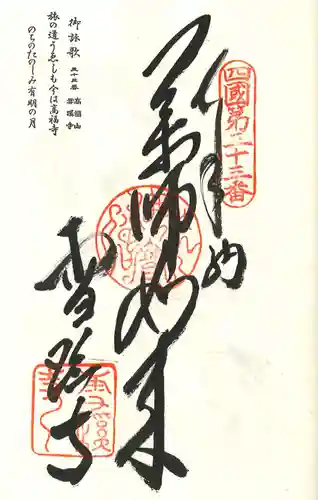 四國第三十三番
奉納
薬師如来
雪蹊寺
御詠歌 三十三番 高福山 雪蹊寺
旅の道うゑしも今は高福寺
のちのたのしみ有明の月